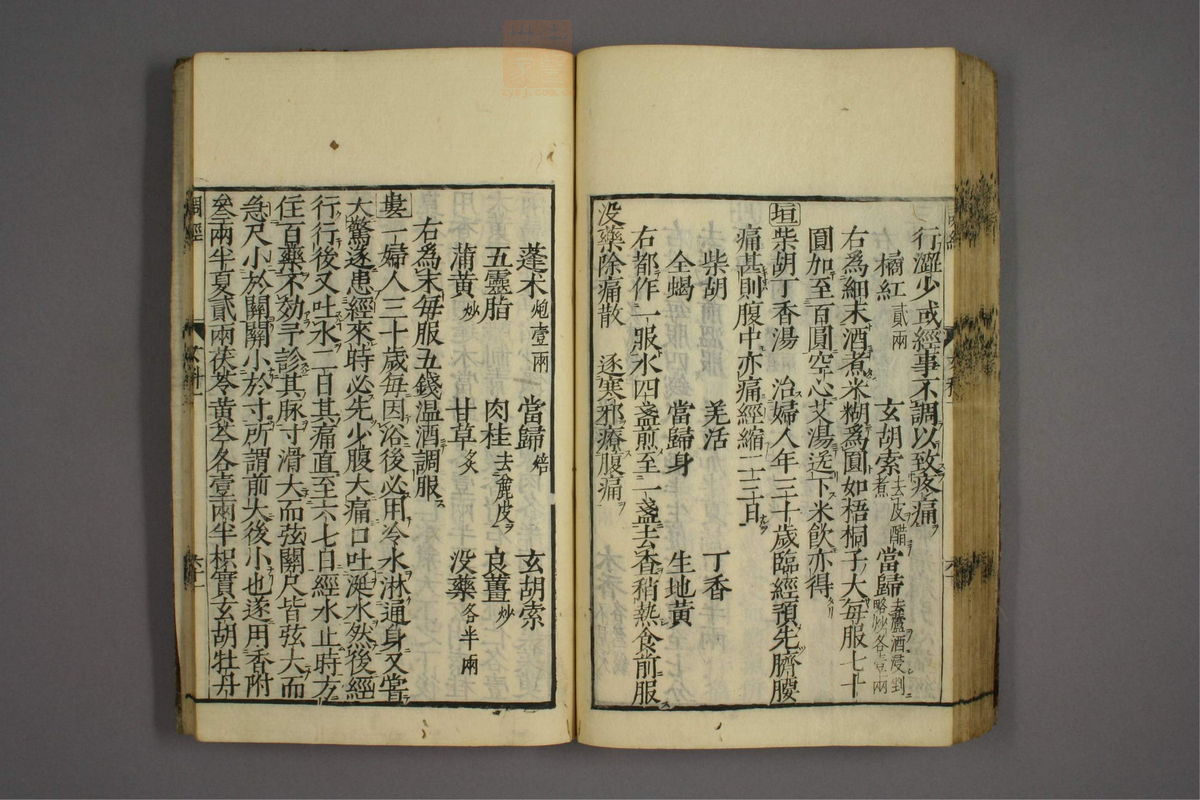 行澀少或經事不調以致疼痛
橘紅貳兩 玄胡索去皮醋煮 當歸去蘆酒浸剉略炒各壹兩
右為細末酒煮米糊爲圓如梧桐子大每服七十
圓加至百圓空心艾湯送下米飲亦得
垣柴胡丁香湯 治婦人年三十歲臨經預先臍腰
痛甚則腹中亦痛經縮二三日
柴胡 羌活 丁香
全蝎 當歸身 生地黃
右都作一服水四盞煎至一盞去查稍熱食前服
没藥除痛散 逐寒邪療腹痛
蓬朮炮壹兩 當歸焙 玄胡索
五靈脂 肉桂去麁皮 良薑炒
蒲黃炒 甘草炙 没藥各半兩
右爲末每服五錢温酒調服
婁一婦人三十歲每因浴後必用冷水淋通身又嘗
大驚遂患經來時必先少腹大痛口吐涎水然後經
行行後又吐水二日其痛直至六七日經水止時方
住百藥不効予診其脉寸滑大而弦關尺皆弦大而
急尺小於關關小於寸所謂前大後小也遂用香附
叄兩半夏貳兩茯苓黃芩各壹兩半枳實玄胡牡丹
調經